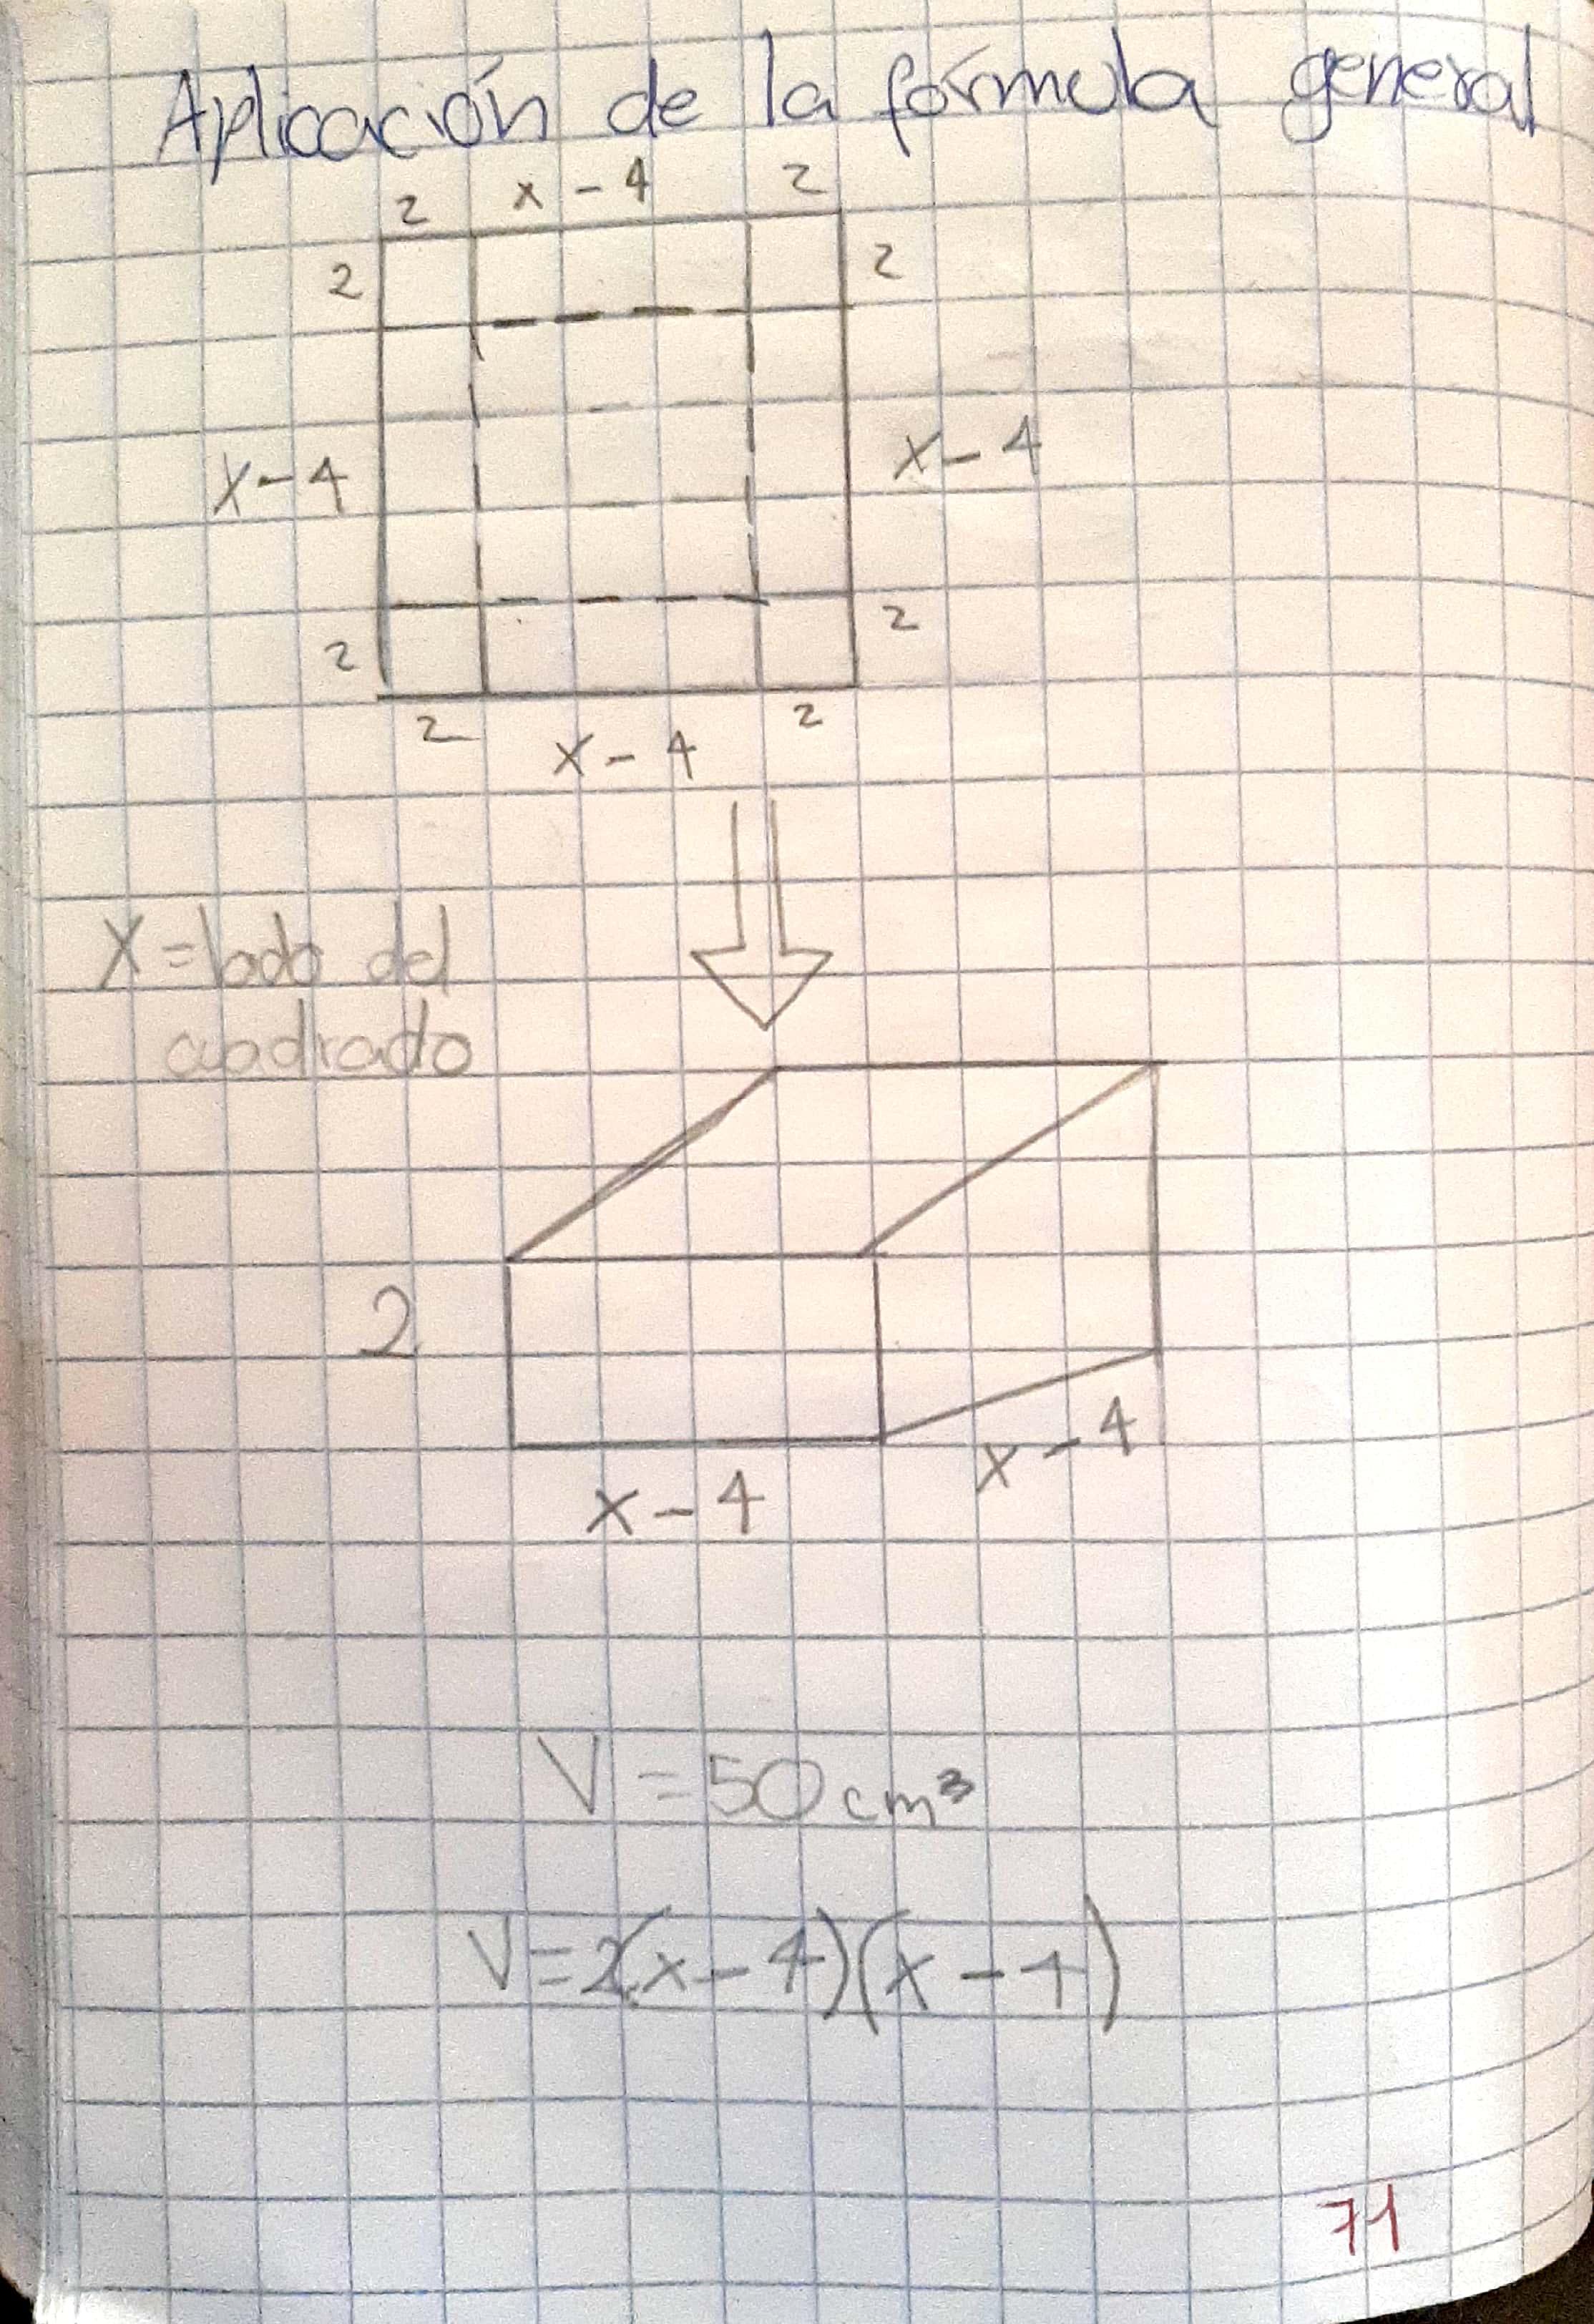 Aplicación de la fórmula general
2 x - 4 2
2 2
x - 4 x - 4
2 2
2 x - 4 2
X = lado del
cuadrado
2
x - 4
x - 4
V = 50 cm³
V = 2(x - 4)(x - 4)
71